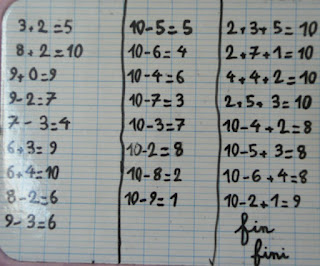 3+2=5
8+2=10
9+0=9
9-2=7
7-3=4
6+3=9
6+4=10
8-2=6
9-3=6
10-5=5
10-6=4
10-4=6
10-7=3
10-3=7
10-2=8
10-8=2
10-9=1
2+3+5=10
2+7+1=10
4+4+2=10
2+5+3=10
10-4+2=8
10-5+3=8
10-6+4=8
10-2+1=9
fin
fini